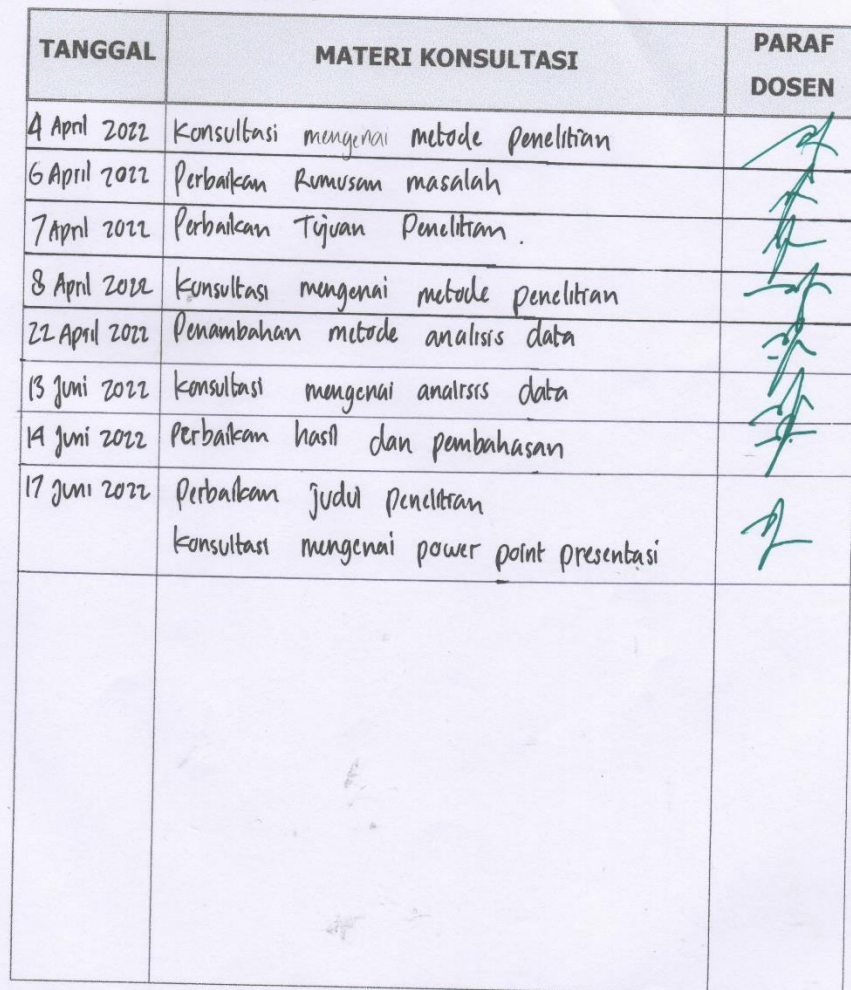 TANGGAL MATERI KONSULTASI PARAF DOSEN
4 April 2022 Konsultasi mengenai metode penelitian
6 April 2022 Perbaikan Rumusan masalah
7 April 2022 Perbaikan Tujuan Penelitian.
8 April 2022 Konsultasi mengenai metode penelitian
22 April 2022 Penambahan metode analisis data
13 Juni 2022 Konsultasi mengenai analisis data
14 Juni 2022 Perbaikan hasil dan pembahasan
17 Juni 2022 Perbaikan judul penelitian
Konsultasi mengenai power point presentasi